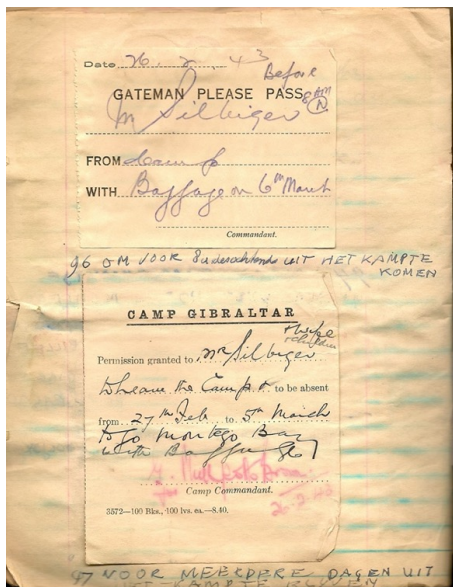 Date 26. 2. 43
Before
8 AM
GATEMAN PLEASE PASS
Mr Silbiger
FROM Camp
WITH Baggage on 6th March
Commandant.
96 OM VOOR 8 UIT HET KAMPTE
KOMEN
CAMP GIBRALTAR
+ wife
+ children
Permission granted to Mr Silbiger
to leave the Camp & to be absent
from 27th Feb to 5th March
to go Montego Bay
with Baggage
Camp Commandant.
26-2-43
3572—100 Bks., 100 lvs. ea.—8.40.
97 VOOR MEERDERE DAGEN UIT
HET KAMPTE BLIJVEN